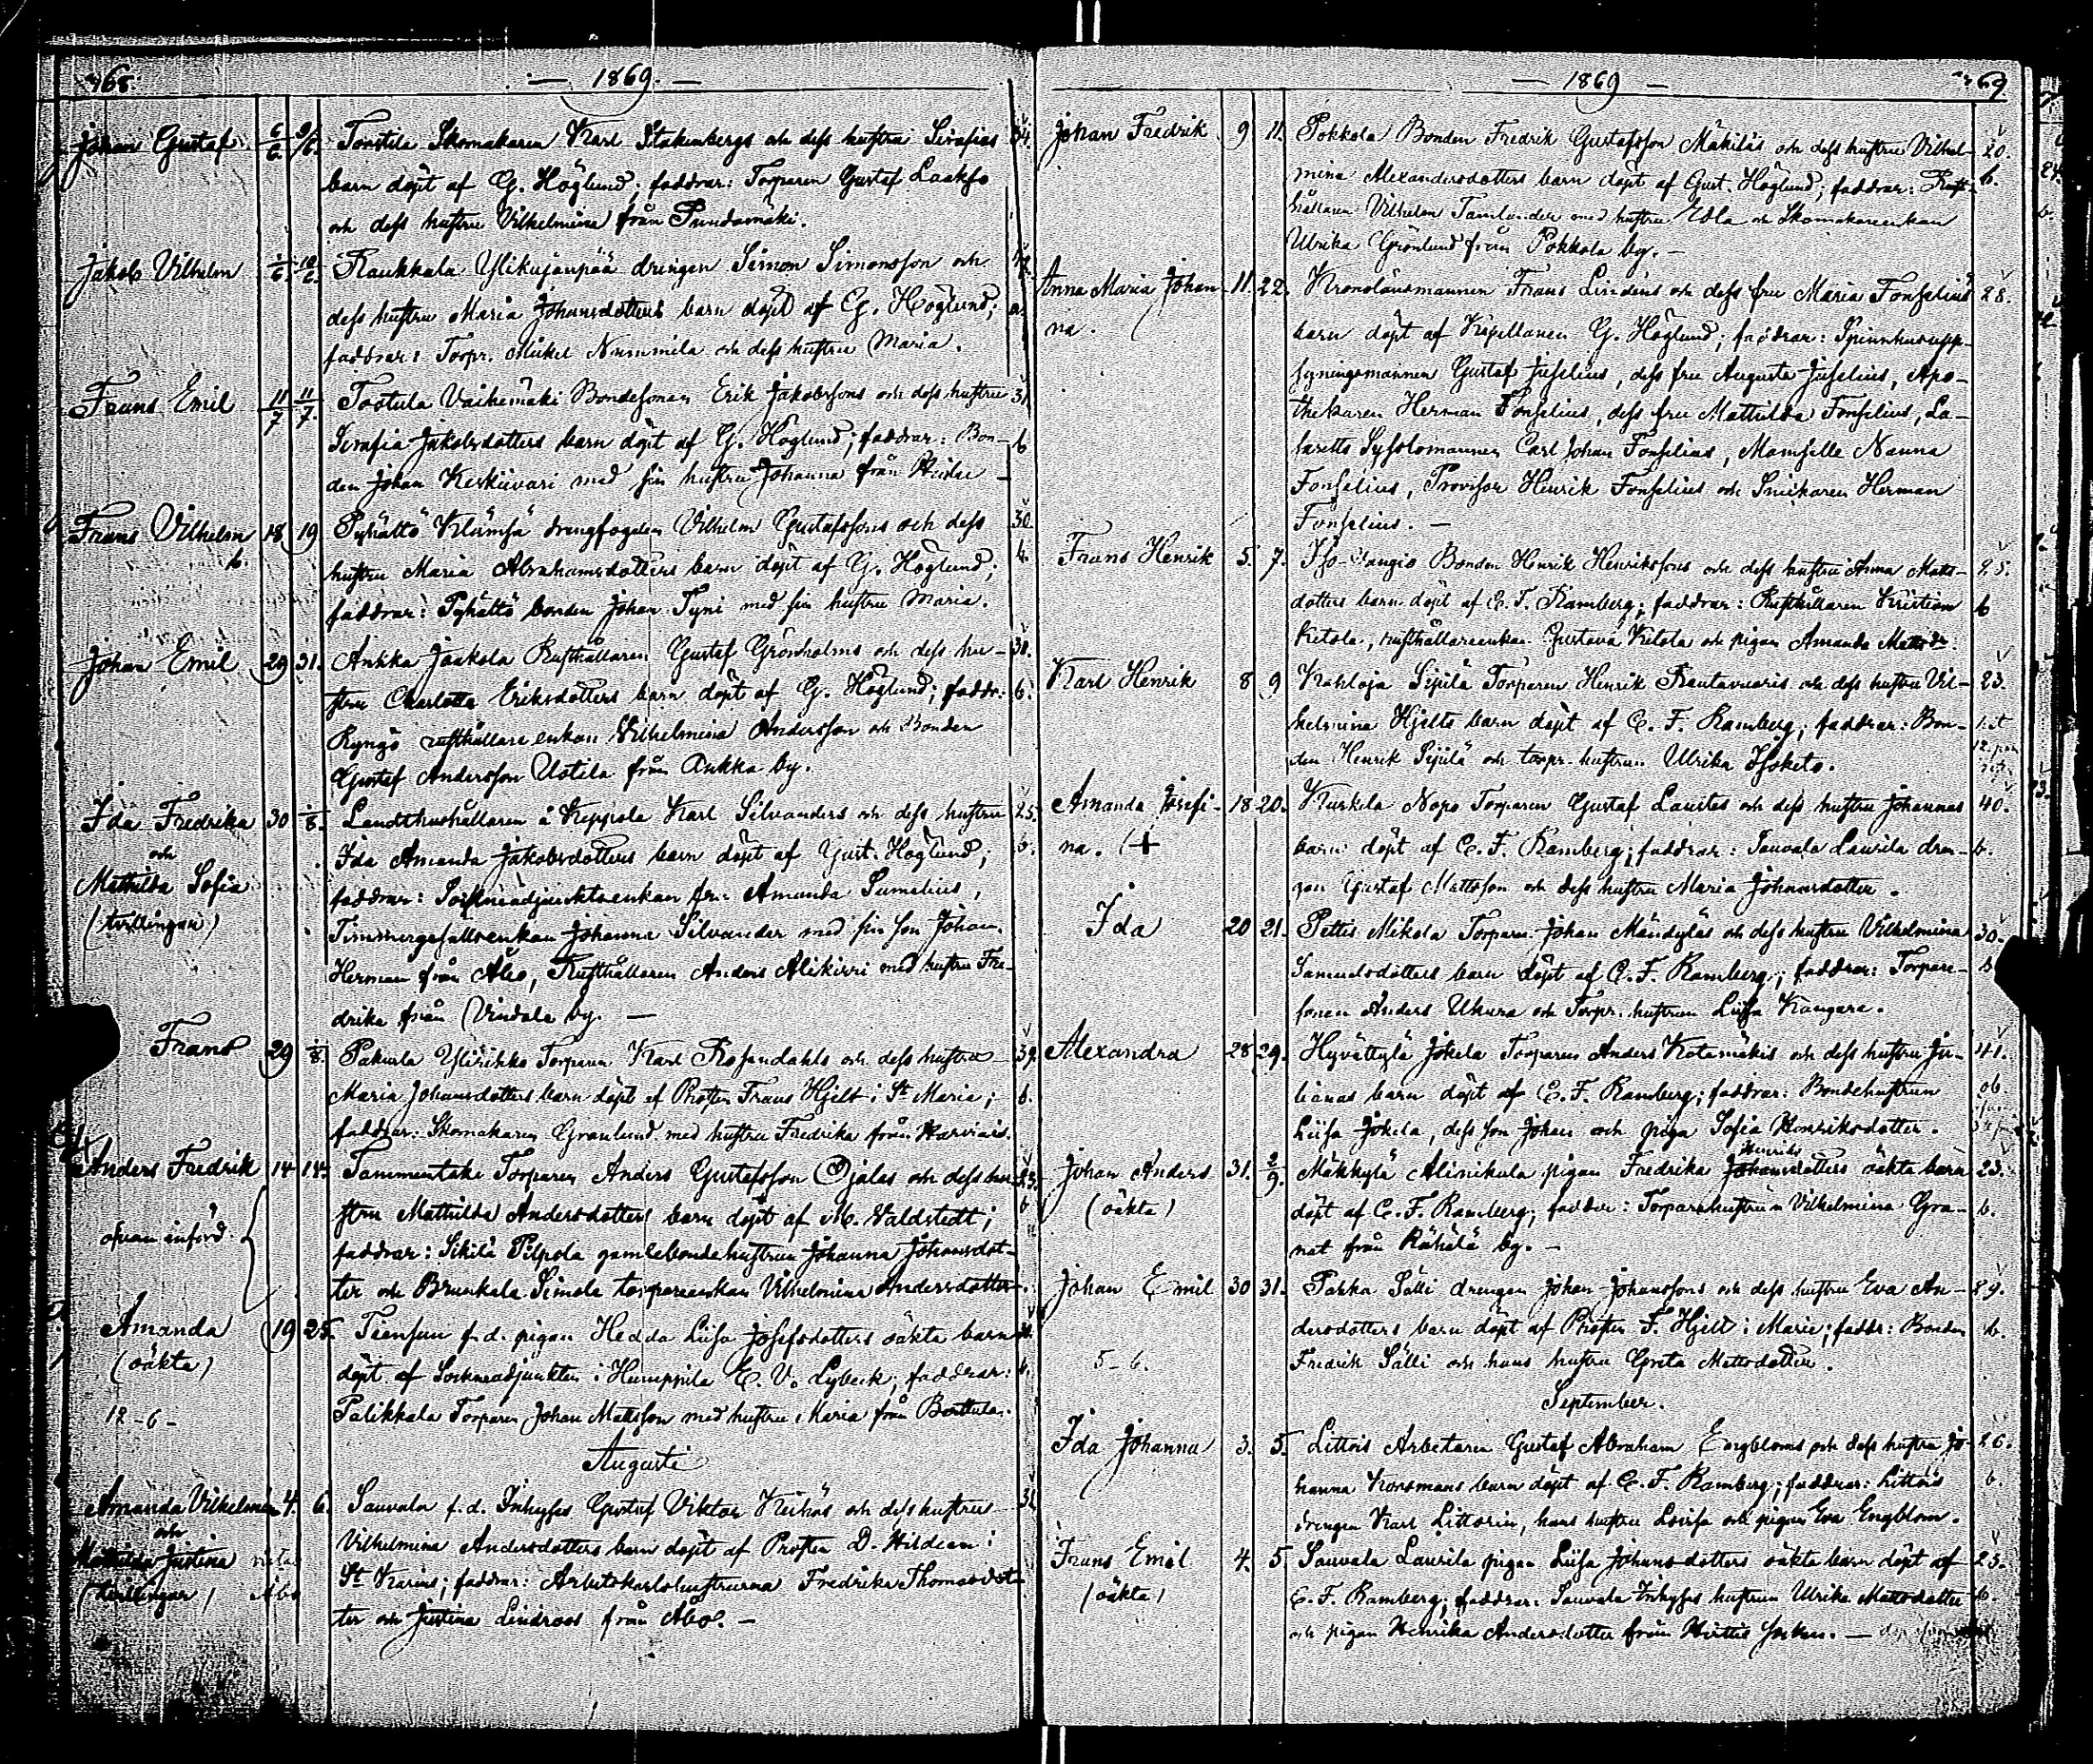 168.
— 1869. —
Johan Gustaf 6/6. 9/6. Torstila Skomakaren Karl Stakenbergs och dess hustru Serafias 34.
barn döpt af G. Höglund; faddrar: Torparen Gustaf Laakso
och dess hustru Vilhelmina från
Jakob Vilhelm 10/6. Raukkala Ylikujanpää drengen Simon Simonsson och
dess hustru Maria Johansdotters barn döpt af G. Höglund;
faddrar: Torpr. Mikel Nummila och dess hustru Maria.
Frans Emil 11/7 11/7. Tortula Vaihemäki Bondesonen Erik Jakobssons och dess hustru 31
Serafia Jakobsdotters barn döpt af G. Höglund; faddrar: Bon- b
den Johan Keskivari med sin hustru Johanna från
Frans Vilhelm 18 19 Pyhältö Klämsä drengfogden Vilhelm Gustafssons och dess 30
b. hustru Maria Abrahamsdotters barn döpt af G. Höglund; b.
faddrar: Pyhältö bonden Johan Tyni med sin hustru Maria.
Johan Emil 29 31. Ankka Jaakola Rusthållaren Gustaf Grönholms och dess hu- 38.
stru Charlotta Eriksdotters barn döpt af G. Höglund; faddr: b.
Ryngö rusthållare enkan Vilhelmina Andersson och Bonden
Gustaf Andersson Uotila från Ankka by.
Ida Fredrika 30 1/8. Landthushållaren å Keppola Karl Silvanders och dess hustru 25.
och Ida Amanda Jakobsdotters barn döpt af Gust. Höglund; b.
Mathilda Sofia faddrar: Sockneadjunktsenkan fru Amanda Sumelius,
(tvillingar) Timmergesällsenkan Johanna Silvander med sin son Johan
Herman från Åbo, Rusthållaren Anders Alikirri med hustru Fre-
drika från Vindala by. —
Frans 29 1/8. Pakurla Ylirihko Torparen Karl Rosendahls och dess hustru 39.
Maria Johansdotters barn döpt af Prosten Frans Hjelt i St Maria; b.
faddrar: Skomakaren Granlund med hustru Fredrika från
Anders Fredrik 14 14. Tammentaka Torparen Anders Gustafsson Ojalas och dess hu- 23.
stru Mathilda Andersdotters barn döpt af M. Valdstedt; b
ofvan införd faddrar: Sikilä Pilpola gamlebondehustrun Johanna Johansdot-
ter och Brunkala Simola torpareenkan Vilhelmina Andersdotter.
Amanda 19 25. Tiensuu f.d. pigan Hedda Lisa Josefsdotters oäkta barn
(oäkta) döpt af Sockneadjunkten i Humppila E. V. Lybeck; faddrar:
12-6- Palikkala Torparen Johan Mattsson med hustru Maria från
Augusti
Amanda Vilhelmina 4. 6. Sauvala f.d. Inhyses Gustaf Viktor Keihäs och dess hustru
och Vilhelmina Andersdotters barn döpt af Prosten D. Hildeen i
Mathilda Justina St Karins; faddrar: Arbetskarlshustrurna Fredrika Thomasdot-
(tvillingar) ter och Justina Lindroos från Åbo. —
— 1869 —
169
Johan Fredrik 9 11. Pokkola Bonden Fredrik Gustafsson Mäkiläs och dess hustru Vilhel- 20.
mina Alexandersdotters barn döpt af Gust. Höglund; faddrar: Rust- b.
hållaren Vilhelm Tamlander med hustru Edla och Skomakareenkan
Ulrika Grönlund från Pokkola by. —
Anna Maria Johan- 11. 22. Kronolänsmannen Frans Lindéns och dess fru Maria Fonselius 28.
na. barn döpt af Kapellanen G. Höglund; faddrar: Spinnhusupp-
syningsmannen Gustaf Juselius, dess fru Augusta Juselius, Apo-
thekaren Herman Fonselius, dess fru Mathilda Fonselius, La-
saretts Sysslomannen Carl Johan Fonselius, Mamselle Nanna
Fonselius, Provisor Henrik Fonselius och Snickaren Herman
Fonselius. —
Frans Henrik 5. 7. Iso- Bonden Henrik Henrikssons och dess hustru Anna Matts- 25.
dotters barn döpt af C. F. Ramberg; faddrar: Rusthållaren Kristian b
Ketola, rusthållareenkan Gustava Ketola och pigan Amanda Mattsdr.
Karl Henrik 8 9 Kahloja Sipilä Torparen Henrik Rautavuoris och dess hustru Vil- 23.
helmina Hjelts barn döpt af C. F. Ramberg; faddrar: Bon-
den Henrik Sipilä och torpr. hustrun Ulrika Isoketo.
Amanda Josefi- 18 20. Kurkela Nopo Torparen Gustaf Laustes och dess hustru Johannas 40.
na. + barn döpt af C. F. Ramberg; faddrar: Sauvala Laurila dren- b.
gen Gustaf Mattsson och dess hustru Maria Johansdotter.
Ida 20 21. Pettis Mikola Torparen Johan Mändyläs och dess hustru Vilhelmina 30.
Samuelsdotters barn döpt af C. F. Ramberg; faddrar: Torpare- b
sonen Anders Ukura och Torpr. hustrun Liisa Kangare.
Alexandra 28 29. Hyvättylä Jokela Torparen Anders Kotamäkis och dess hustru Ju- 41.
lianas barn döpt af C. F. Ramberg; faddrar: Bondehustrun ob
Liisa Jokela, dess son Johan och piga Sofia Henriksdotter.
Johan Anders 31. 2/9. Mäkkylä Alinikula pigan Fredrika Johansdotters Henriks oäkta barn 23.
(oäkta) döpt af C. F. Ramberg; faddrar: Torparehustrun Vilhelmina Gra- b.
nat från Rähälä by. —
Johan Emil 30 31. Pakka Sälli drengen Johan Johanssons och dess hustru Eva An- 29.
dersdotters barn döpt af Prosten F. Hjelt i Marie; faddr: Bonden b.
5-6. Fredrik Sälli och hans hustru Greta Mattsdotter.
September.
Ida Johanna 3. 5. Littois Arbetaren Gustaf Abraham Engbloms och dess hustru Jo- 26.
hanna Korsmans barn döpt af C. F. Ramberg; faddrar: Littois b
drengen Karl Littorin, hans hustru Lovisa och pigan Eva Engblom.
Frans Emil 4. 5 Sauvala Laurila pigan Liisa Johansdotters oäkta barn döpt af 25.
(oäkta) C. F. Ramberg; faddrar: Sauvala Inhyses hustrun Ulrika Mattsdotter b.
och pigan Henrika Andersdotter från socken. —